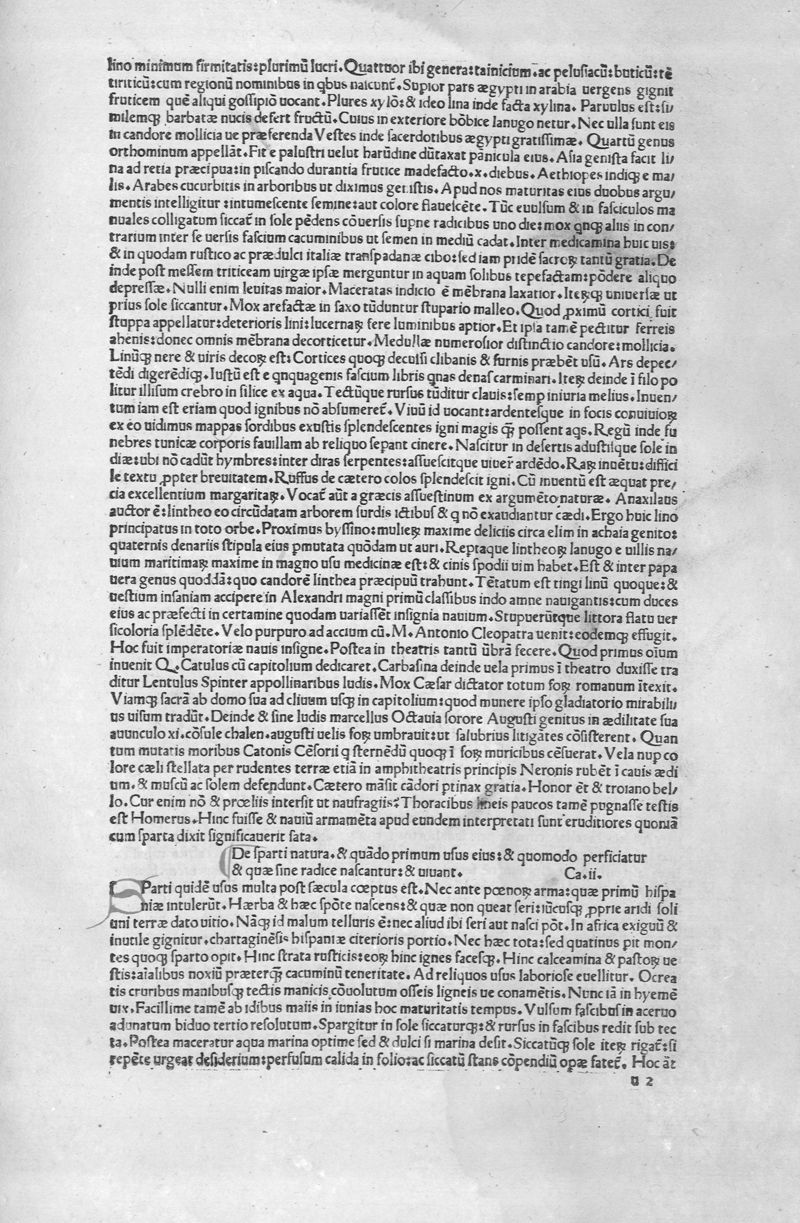 lino minimum firmitatis:plurimū lucri. Quattuor ibi genera:tainicium. ac pelusiacū:buticū:tē
tiriticū:cum regionū nominibus in qbus nascunt᷑. Supior pars ægypti in arabia uergens gignit
fruticem quē aliqui gossipiō uocant. Plures xylō:& ideo lina inde facta xylina. Paruulus est:si/
milemqꝫ barbatæ nucis defert fructū. Cuius in exteriore bōbice lanugo netur. Nec ulla sunt eis
in candore mollicia ue præferenda Vestes inde sacerdotibus ægypti gratissimæ. Quartū genus
orthominum appellāt. Fit e palustri uelut harūdine dūtaxat panicula eius. Asia genista facit li/
na ad retia præcipua:in piscando durantia frutice madefacto.x.diebus. Aethiopes indiqꝫ e ma/
lis. Arabes cucurbitis in arboribus ut diximus genistis. Apud nos maturitas eius duobus argu/
mentis intelligitur:intumescente semine:aut colore flauescēte. Tūc euulsum & in fasciculos ma
nuales colligatum siccat᷑ in sole pēdens cōuersis supne radicibus uno die:mox qnqꝫ aliis in con/
trarium inter se uersis fascium cacuminibus ut semen in mediū cadat. Inter medicamina huic uis:
& in quodam rustico ac prædulci italiæ transpadanæ cibo:sed iam pridē sacroꝝ tantū gratia. De
inde post messem triticeam uirgæ ipsæ merguntur in aquam solibus tepefactam:pōdere aliquo
depressæ. Nulli enim leuitas maior. Maceratas indicio ē mēbrana laxatior. Iteꝝqꝫ uniuersæ ut
prius sole siccantur. Mox arefactæ in saxo tūduntur stupario malleo. Quod ꝓximū cortici fuit
stuppa appellatur:deterioris lini:lucernaꝝ fere luminibus aptior. Et ipsa tamē pectitur ferreis
ahenis:donec omnis mēbrana decorticetur. Medullæ numerosior distinctio candore:mollicia.
Linūqꝫ nere & uiris decoꝝ est: Cortices quoqꝫ decussi clibanis & furnis præbēt usū. Ars depec/
tēdi digerēdiqꝫ. Iustū est e qnquagenis fascium libris qnas denas carminari. Iteꝝ deinde ī filo po
litur illisum crebro in silice ex aqua. Tectūque rursus tūditur clauis:semp iniuria melius. Inuen/
tum iam est etiam quod ignibus nō absumeret᷑. Viuū id uocant:ardentesque in focis conuiuioꝝ
ex eo uidimus mappas sordibus exustis splendescentes igni magis qꝫ possent aqs. Regū inde fu
nebres tunicæ corporis fauillam ab reliquo sepant cinere. Nascitur in desertis adustisque sole in
diæ:ubi nō cadūt hymbres:inter diras serpentes:assuescitque uiuer᷑ ardēdo. Raꝝ inuētu:diffici
le textu ꝓpter breuitatem. Ruffus de cætero colos splendescit igni. Cū inuentū est æquat pre/
cia excellentium margaritaꝝ. Vocat᷑ aūt a græcis assuestinum ex argumēto naturæ. Anaxilaus
auctor ē:lintheo eo circūdatam arborem surdis ictibus & q nō exaudiantur cædi. Ergo huic lino
principatus in toto orbe. Proximus byssino:mulieꝝ maxime deliciis circa elim in achaia genito:
quaternis denariis stipula eius pmutata quōdam ut auri. Reptaque lintheoꝝ lanugo e uillis na/
uium maritimaꝝ maxime in magno usu medicinæ est:& cinis spodii uim habet. Est & inter papa
uera genus quoddā:quo candorē linthea præcipuū trahunt. Tētatum est tingi linū quoque:&
uestium insaniam accipere in Alexandri magni primū classibus indo amne nauigantis:cum duces
eius ac præfecti in certamine quodam uariassēt insignia nauium. Stupuerūtque littora flatu uer
sicoloria splēdēte. Velo purpuro ad accium cū. M. Antonio Cleopatra uenit:eodemqꝫ effugit.
Hoc fuit imperatoriæ nauis insigne. Postea in theatris tantū ūbrā fecere. Quod primus oīum
inuenit Q. Catulus cū capitolium dedicaret. Carbasina deinde uela primus ī theatro duxisse tra
ditur Lentulus Spinter appollinaribus ludis. Mox Cæsar dictator totum foꝝ romanum ītexit.
Viamqꝫ sacrā ab domo sua ad cliuum usqꝫ in capitolium:quod munere ipso gladiatorio mirabili
us uisum tradūt. Deinde & sine ludis marcellus Octauia sorore Augusti genitus in ædilitate sua
auunculo xi.cōsule chalen.augusti uelis foꝝ umbrauit:ut salubrius litigātes cōsisterent. Quan
tum mutatis moribus Catonis Cēsorii q sternēdū quoqꝫ ī foꝝ muricibus cēsuerat. Vela nup co
lore cæli stellata per rudentes terræ etiā in amphitheatris principis Neronis rubēt ī cauis ædi
um. & muscū ac solem defendunt. Cætero māsit cādori ptinax gratia. Honor ēt & troiano bel/
lo. Cur enim nō & prœliis intersit ut naufragiis? Thoracibus lineis paucos tamē pugnasse testis
est Homerus. Hinc fuisse & nauiū armamēta apud eundem interpretati sunt eruditiores quoniā
cum sparta dixit significauerit sata.
De sparti natura. & quādo primum usus eius:& quomodo perficiatur
& quæ sine radice nascantur:& uiuant. Ca.ii.
SParti quidē usus multa post sæcula cœptus est. Nec ante pœnoꝝ arma:quæ primū hispa
niæ intulerūt. Hærba & hæc spōte nascens:& quæ non queat seri:iūcusqꝫ ꝓprie aridi soli
uni terræ dato uitio. Nāqꝫ id malum telluris ē:nec aliud ibi seri aut nasci pōt. In africa exiguū &
inutile gignitur. chartaginēsis hispaniæ citerioris portio. Nec hæc tota:sed quatinus pit mon/
tes quoqꝫ sparto opit. Hinc strata rusticis:eoꝝ hinc ignes facesqꝫ. Hinc calceamina & pastoꝝ ue
stis:aīalibus noxiū præterqꝫ cacuminū teneritate. Ad reliquos usus laboriose euellitur. Ocrea
tis cruribus manibusqꝫ tectis manicis cōuolutum osseis ligneis ue conamētis. Nunc iā in hyemē
uix. Facillime tamē ab idibus maiis in iunias hoc maturitatis tempus. Vulsum fascibus in aceruo
adunatum biduo tertio resolutum. Spargitur in sole siccaturqꝫ:& rursus in fascibus redit sub tec
ta. Postea maceratur aqua marina optime sed & dulci si marina desit. Siccatūqꝫ sole iteꝝ rigat᷑:si
repēte urgeat desiderium:perfusum calida in folio:ac siccatū stans cōpendiū opæ fatet᷑. Hoc āt
u 2